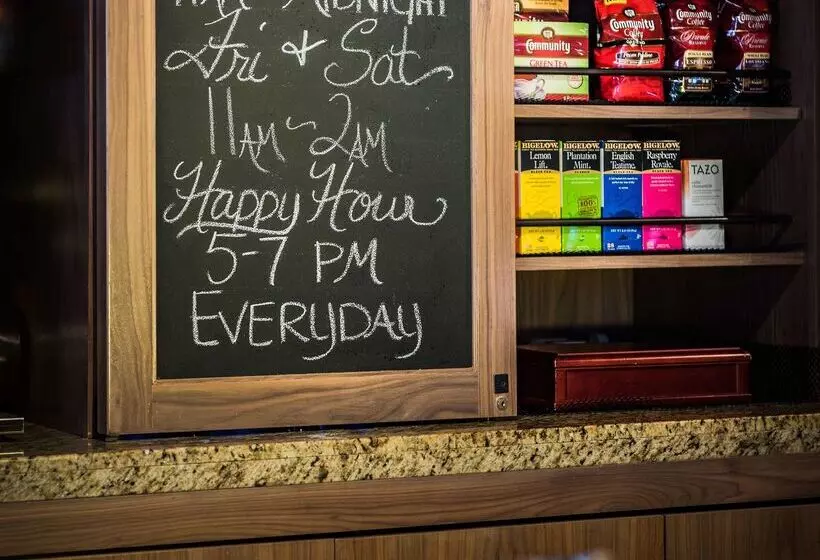 11AM - MIDNIGHT
Fri + Sat
11AM ~ 2AM
Happy Hour
5-7 PM
EVERYDAY
Community
GREEN TEA
Community
Coffee
Community
Coffee
Private
RESERVE
ESPRESSO
Community
Coffee
Private
RESERVE
BIGELOW
Lemon
Lift.
BIGELOW
Plantation
Mint.
BIGELOW
English
Teatime.
BIGELOW
Raspberry
Royale.
TAZO